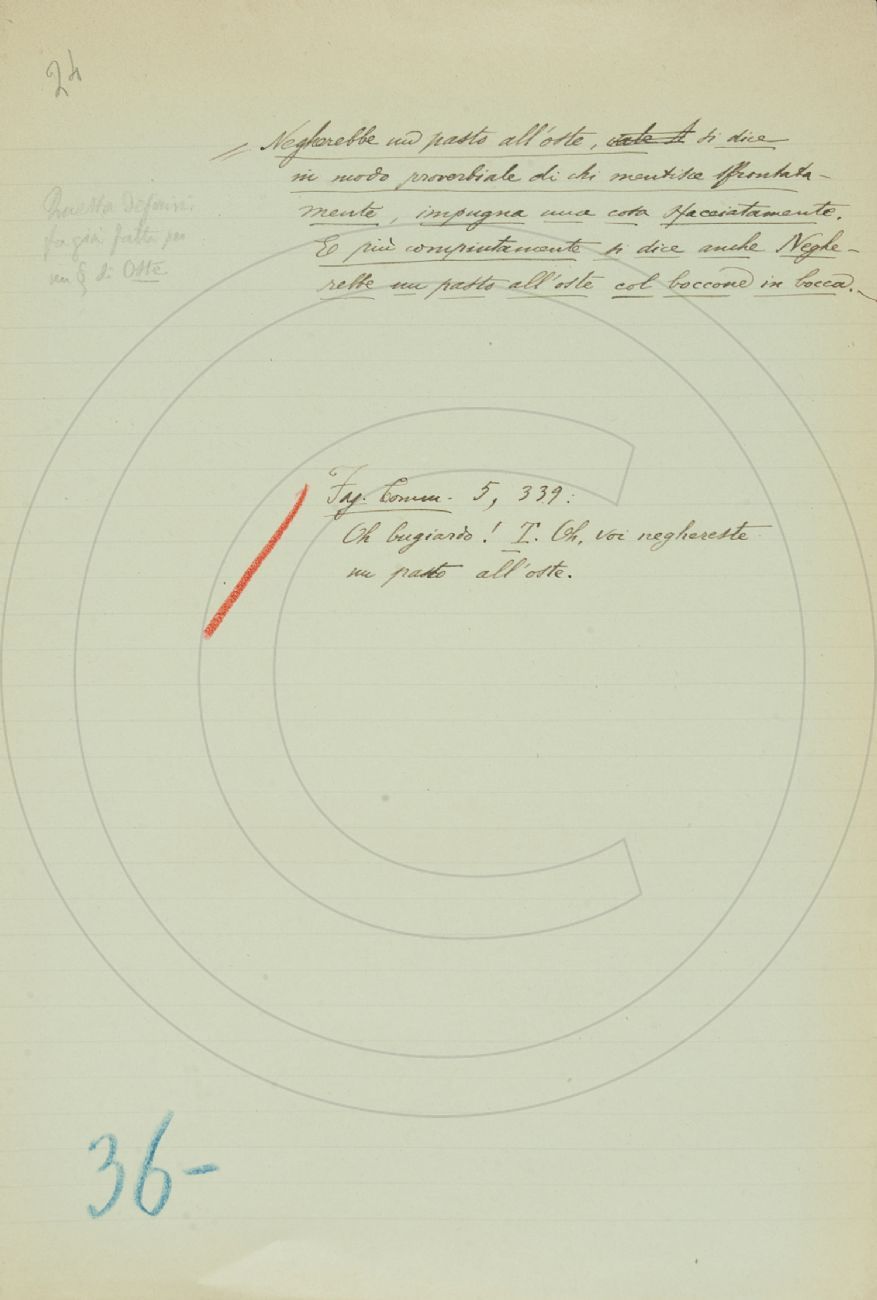 24
Negherebbe un pasto all'oste, si dice
in modo proverbiale di chi mentisce sfrontata-
mente, impugna una cosa sfacciatamente.
E più compiutamente si dice anche Neghe-
rebbe un pasto all'oste col boccone in bocca.
Questa definiz.
fu già fatta per
un § di Oste
Fag. Comm. 5, 339:
Oh bugiardo! T. Oh, voi neghereste
un pasto all'oste.
36-